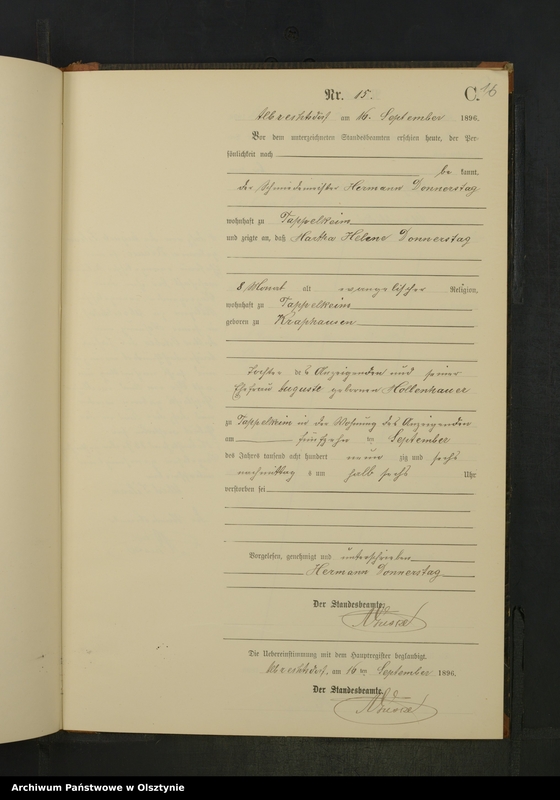 Nr. 15.
C.
16
Albrechtsdorf am 16. September 1896.
Vor dem unterzeichneten Standesbeamten erschien heute, der Per-
sönlichkeit nach
be kannt,
der Schmiedemeister Hermann Donnerstag
wohnhaft zu Tappelkeim
und zeigte an, daß Martha Helene Donnerstag
8 Monat alt evangelischer Religion,
wohnhaft zu Tappelkeim
geboren zu Kraphausen
Tochter des Anzeigenden und seiner
Ehefrau Auguste geborenen Holtenhauer
zu Tappelkeim in der Wohnung des Anzeigenden
am fünfzehn ten September
des Jahres tausend acht hundert neun zig und sechs
nachmittag s um halb sechs Uhr
verstorben sei
Vorgelesen, genehmigt und unterschrieben
Hermann Donnerstag
Der Standesbeamte.
Die Uebereinstimmung mit dem Hauptregister beglaubigt.
Albrechtsdorf, am 16 ten September 1896.
Der Standesbeamte.
Archiwum Państwowe w Olsztynie